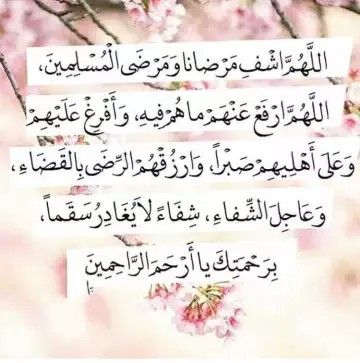 اللَّهُمَّ اشْفِ مَرْضَانَا وَمَرْضَى الْمُسْلِمِينَ،
اللَّهُمَّ ارْفَعْ عَنْهُمْ مَا هُمْ فِيهِ، وَأَفْرِغْ عَلَيْهِمْ
وَعَلَى أَهْلِيهِمْ صَبْرًا، وَارْزُقْهُمْ الرِّضَى بِالقَضَاءِ،
وَعَاجِلَ الشِّفَاءِ، شِفَاءً لاَ يُغَادِرُ سَقَماً،
بِرَحْمَتِكَ يَا أَرْحَمَ الرَّاحِمِينَ